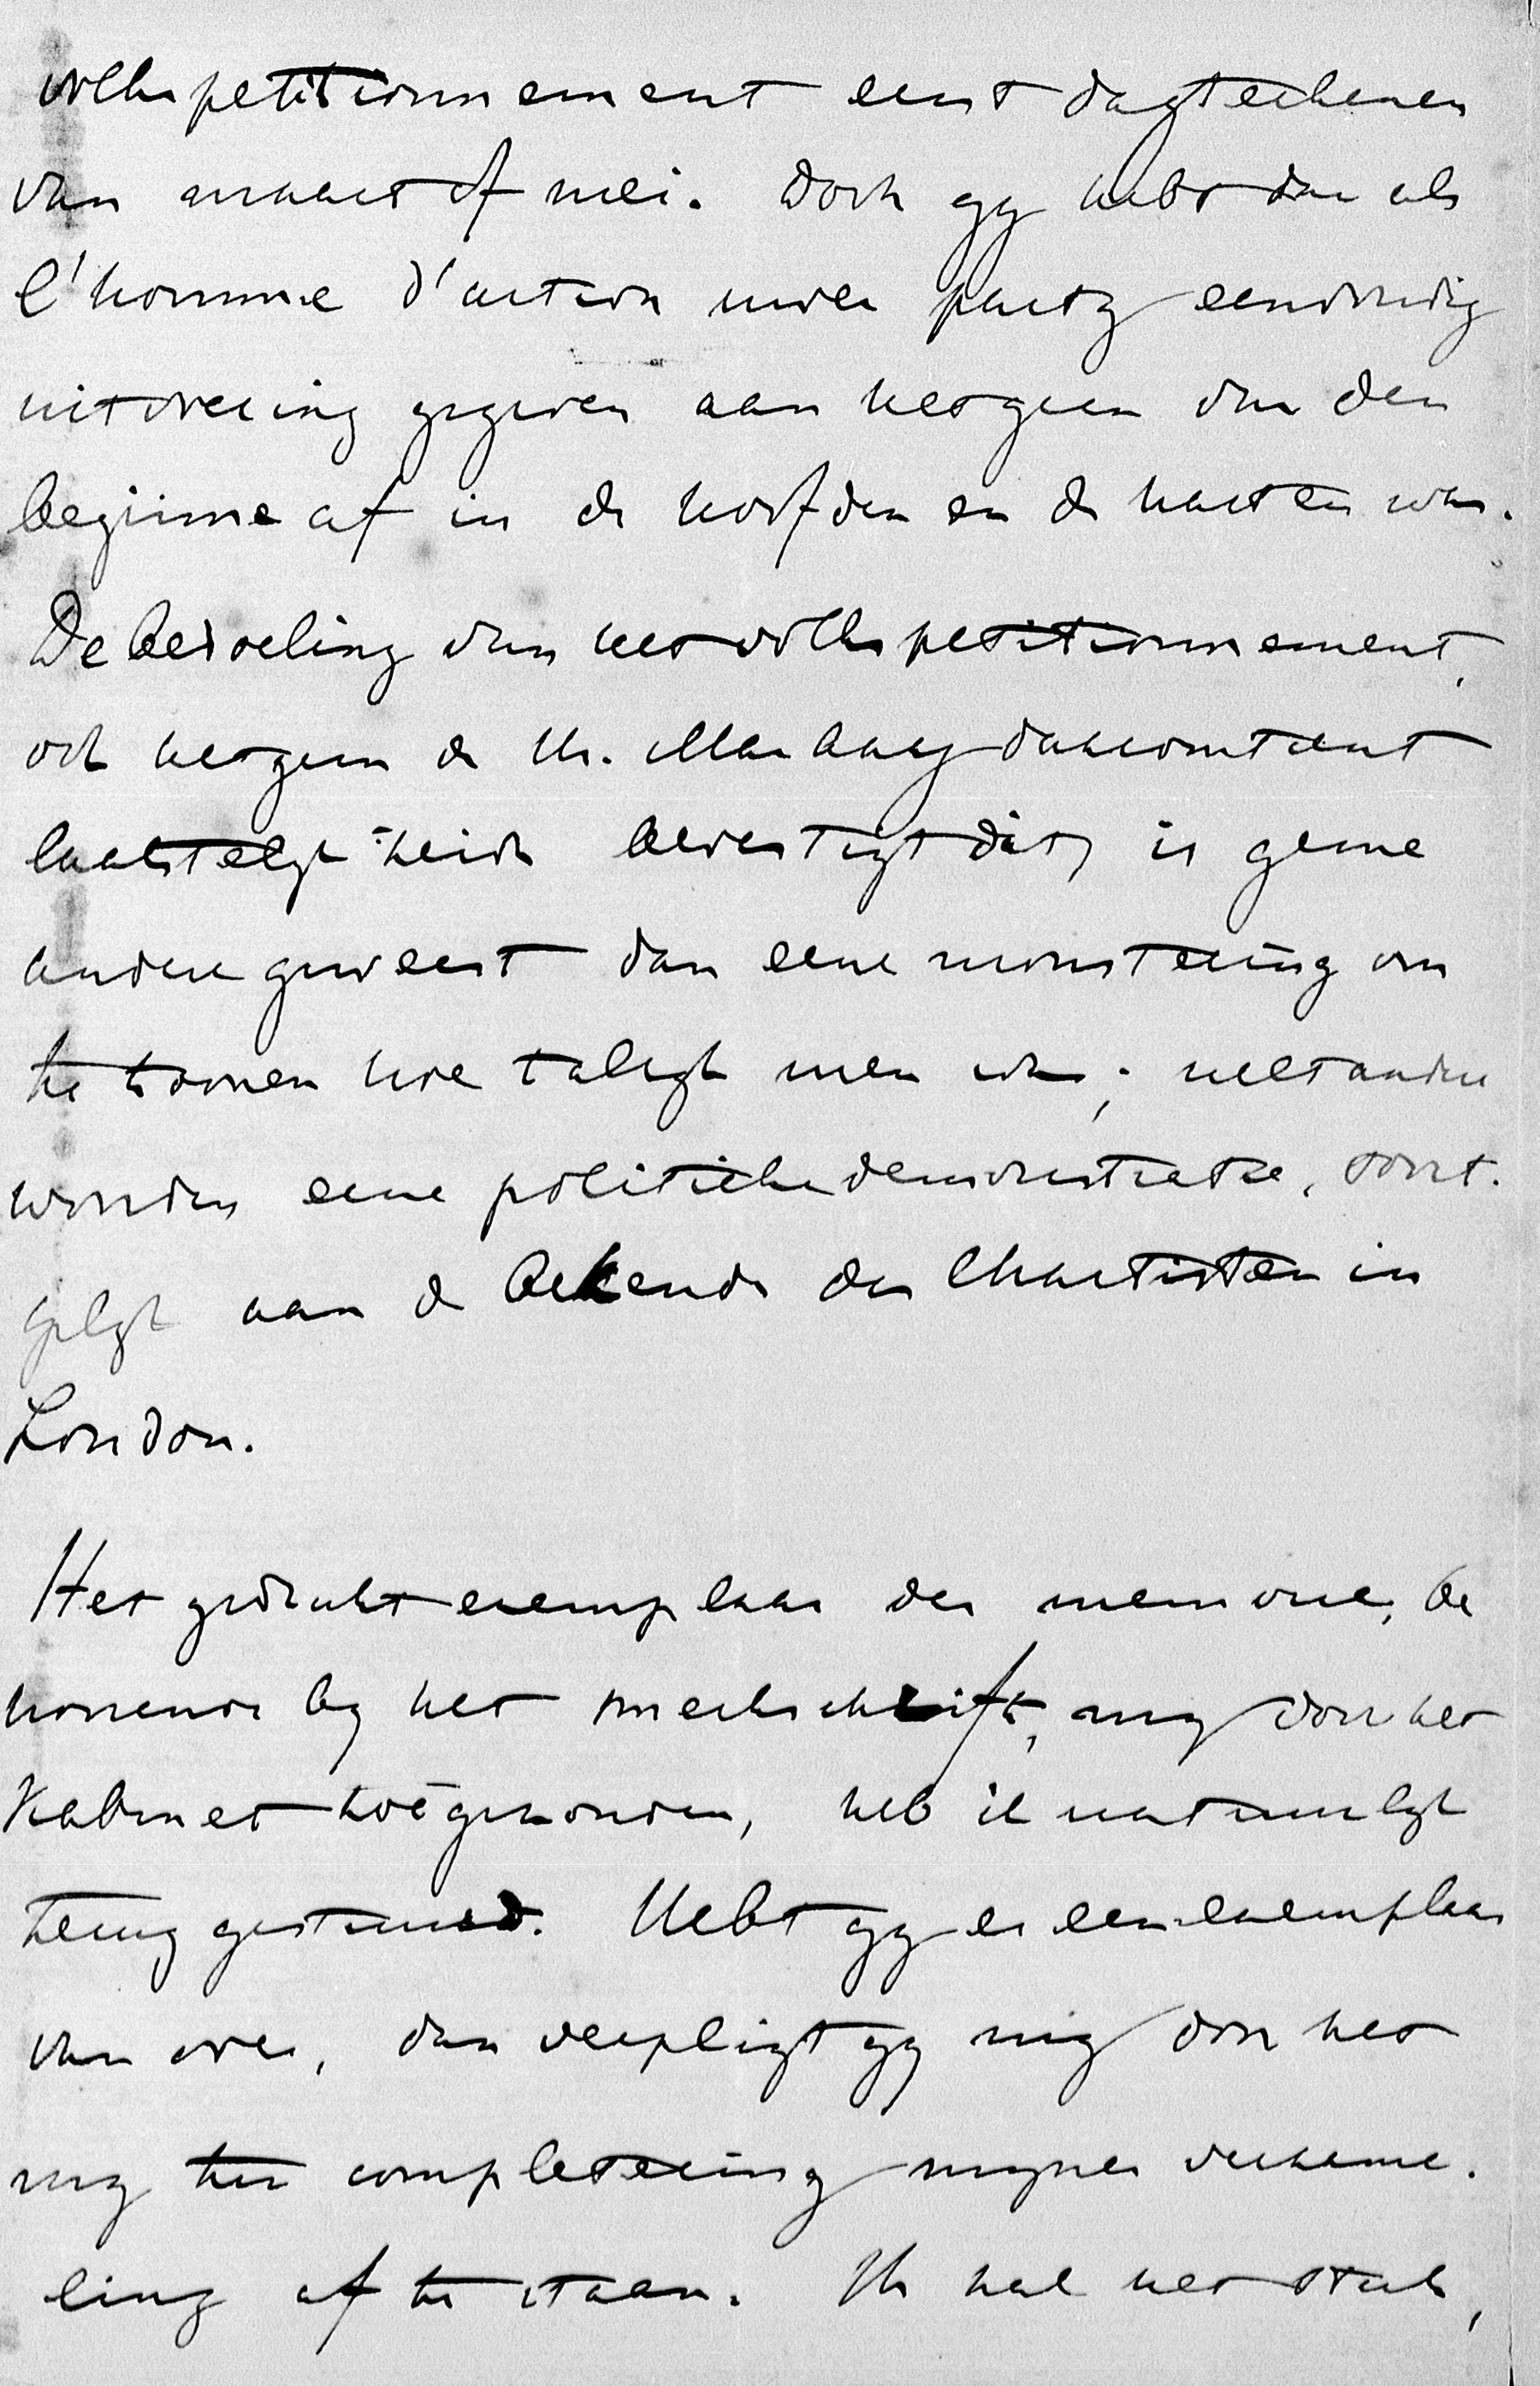 volks petitionnement eerst dagteekenen
van maart of mei. Doch gy hebt dan als
l'homme d'action uwer party eenvoudig
uitvoering gegeven aan hetgeen van den
beginne af in de hoofden en de harten was.
De bedoeling van het volks petitionnement,
ook hetgeen de Hr. daaromtrent
laatstelyk heeft bevestigt dit, is geene
andere geweest dan eene monstering om
te toonen hoe talryk men was; met andere
woorden eene politieke demonstratie, soort-
gelyk aan de bekende der Chartisten in
London.
Het gedrukt exemplaar der memorie, be
hoorende by het smeekschrift, my door het
Kabinet toegezonden, heb ik natuurlyk
terug gestuurd. Hebt gy er een exemplaar
van over, dan verpligt gy my door het
my ter completeering myner verzame-
ling af te staan. Ik zal het stuk,